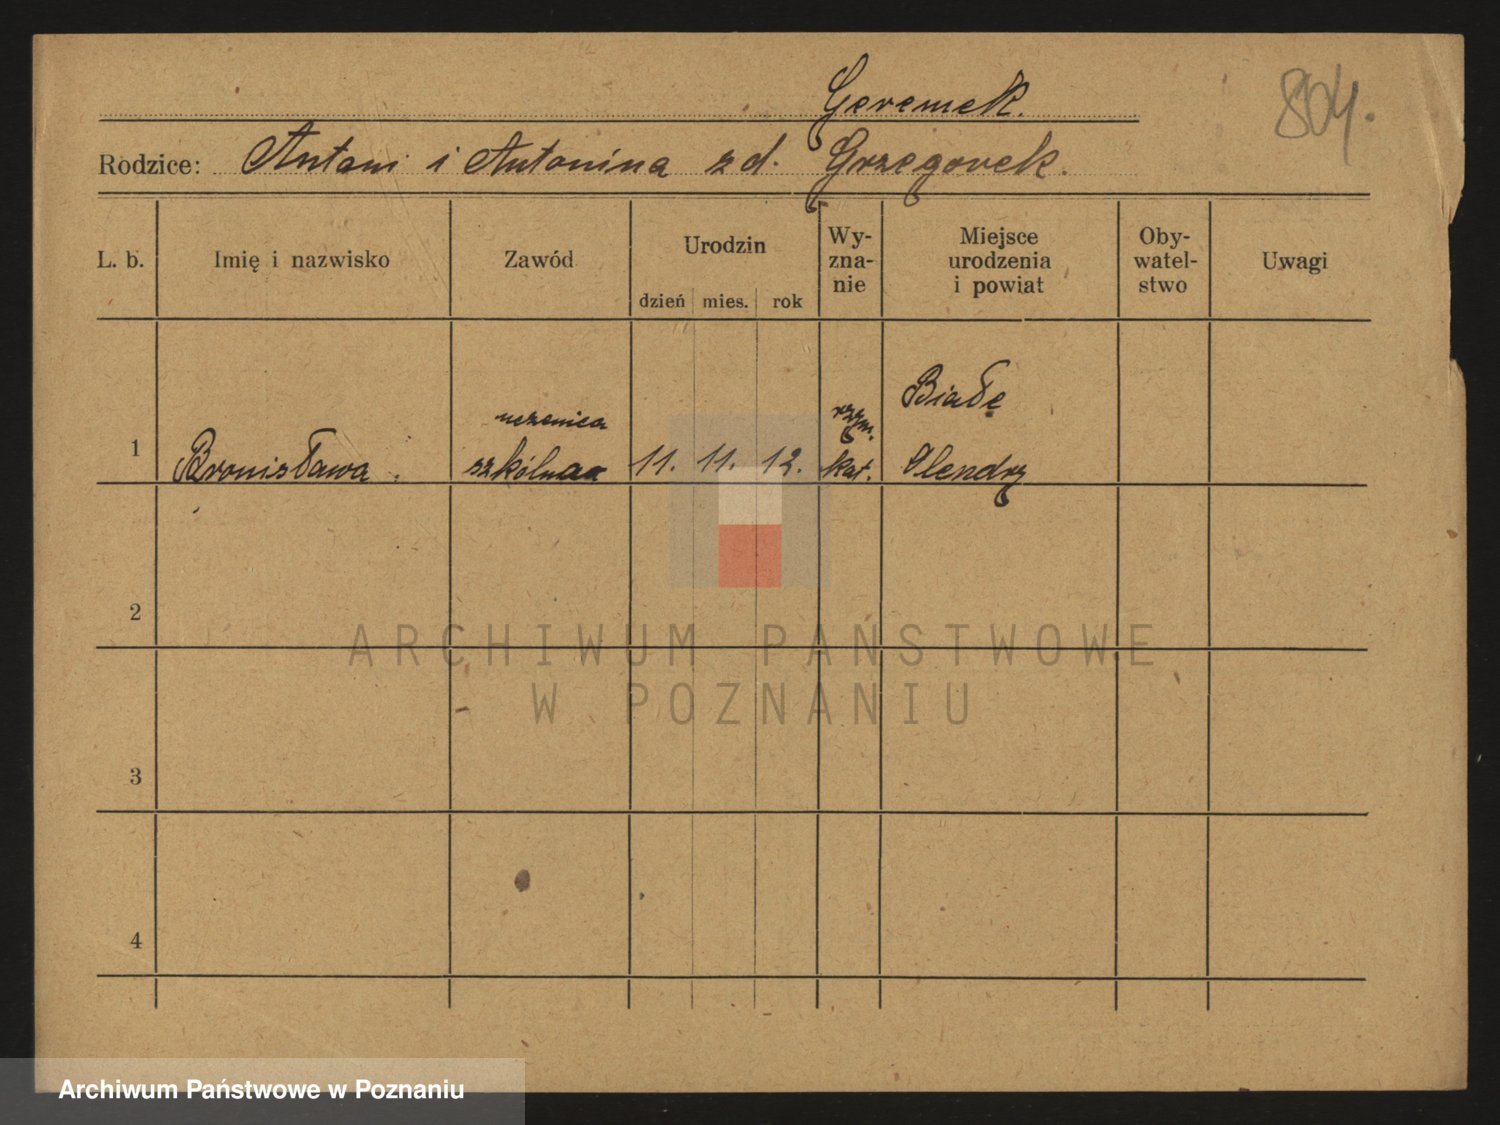 Geremek.
804.
Rodzice: Antoni i Antonina z d. Grzegorek.
L. b. Imię i nazwisko Zawód Urodzin dzień mies. rok Wy-zna-nie Miejsce urodzenia i powiat Oby-watel-stwo Uwagi
1 Bronisława. uczenica szkólna 11. 11. 12. rzym. kat. Białe Olendry
2
ARCHIWUM PAŃSTWOWE
W POZNANIU
3
4
Archiwum Państwowe w Poznaniu